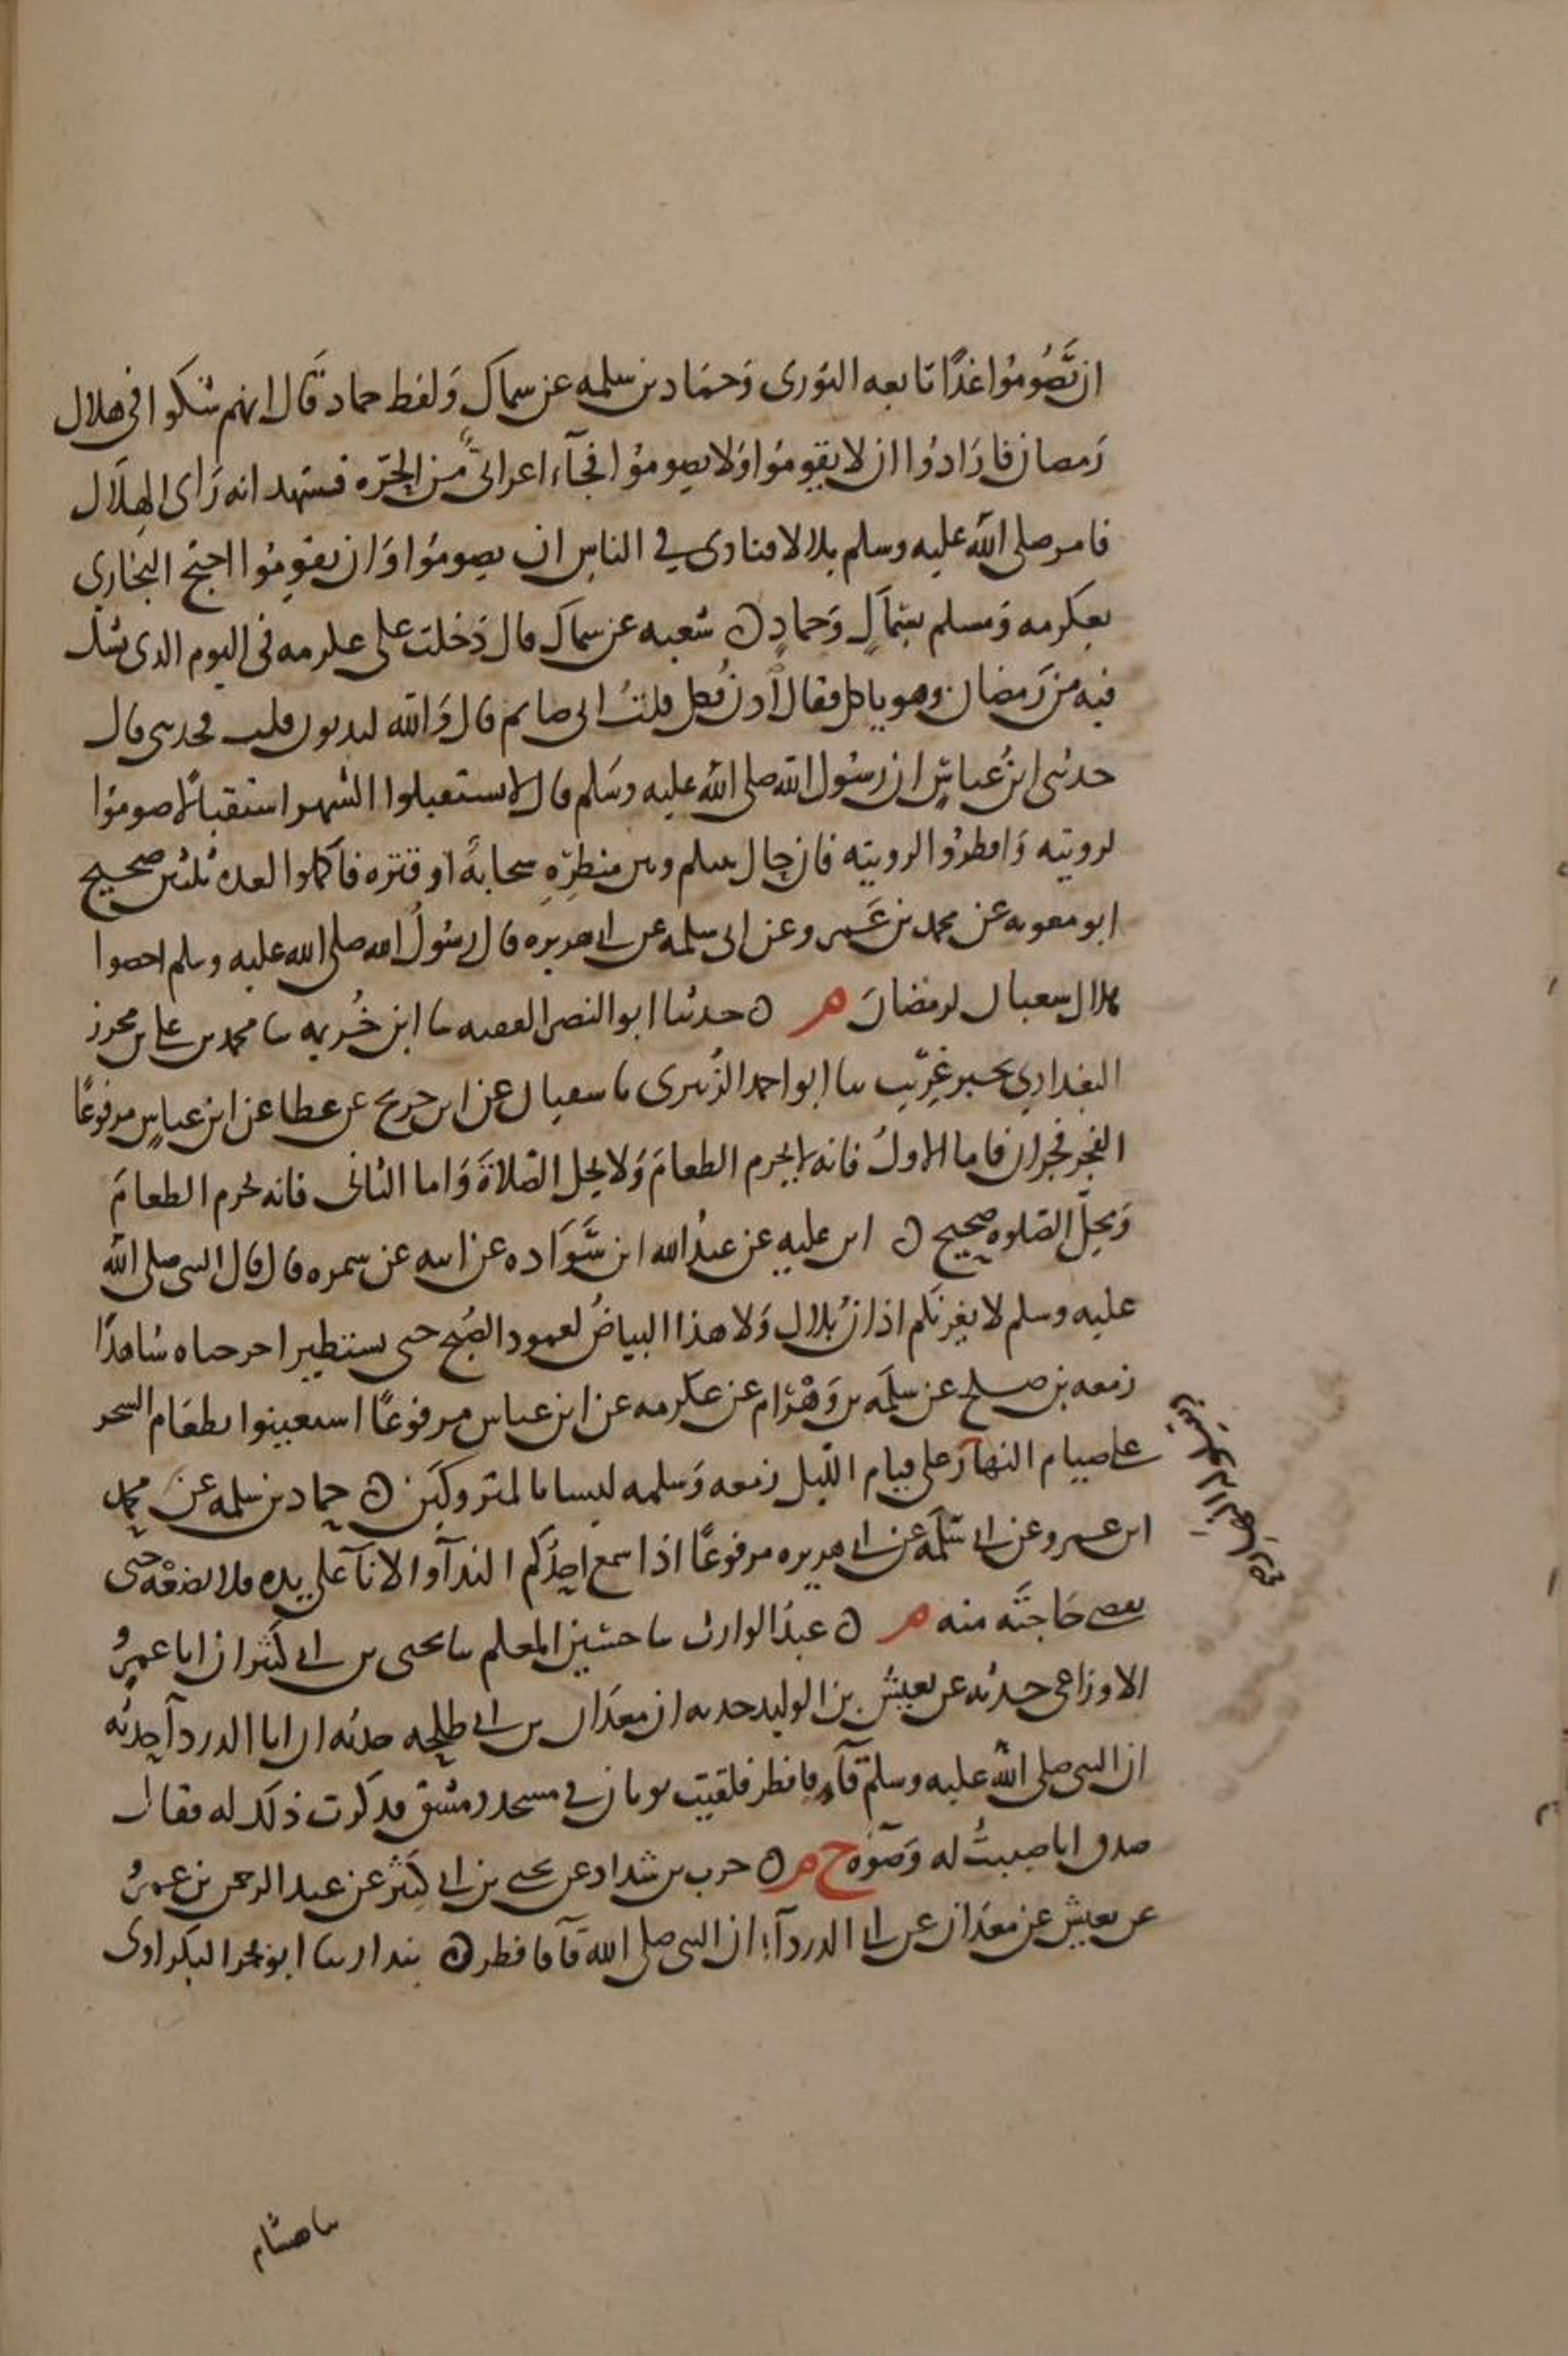 ان تَصُومُوا غدًا تابعه الثوري وَحمَاد بن سلمه عن سماك وَلفظ حماد قَال انهم شكوا في هلال
رَمضان فارَادوُا ان لا يقومُوا وَلا يصومُوا فجآء اعرابىٌّ من الحَرّه فشهد انه رَاى الهِلَال
فامر صلى الله عليه وسلم بلالا فنادى في الناس ان يصومُوا وَان يقومُوا احتج البخاري
بعكرمه وَمسلم بسِمَاكٍ وَحمادٍ ن شعبه عن سماك قال دَخلت على عكرمه في اليوم الذى يشك
فيه من رَمضان وهو ياكل فقال ادنُ فكل قلتُ انى صايم قال وَالله لتدنون قلت فحدثنى قال
حدثنى ابنُ عباسٍ ان رسُول الله صلى الله عليه وسَلم قال لا تستقبلوا الشهر استقبالًا صومُوا
لرويته وَافطرُوا لرويته فان حال بينكم وبين منظرِهِ سحابةٌ او قترَه فاكملوا العده ثلثين صحيح
ابو معويه عن محمد بن عَمرو عن ابى سلمه عن ابى هريره قال رسُولُ الله صلى الله عليه وسلم احصوا
هلال شعبان لرمضان م ن حدثنا ابو النصر الفقيه سا ابن خُزيمه سا محمد بن على بن محرز
البغدادي بخبرٍ غرَيب سا ابو احمد الزُبيرى سا سفيان عن ابن جريج عن عطا عن ابن عباسٍ مرفوعًا
الفجر فجران فاما الاولُ فانه لا يحرم الطعامَ وَلا يحل الصَلاةَ وَاما الثانى فانه يحرم الطعامَ
وَيحلّ الصَلوه صحيح ن ابن عليه عن عبدُ الله ابن سَوَاده عن ابيه عن سمره قال قال النبي صلى الله
عليه وسلم لا يغرنّكم اذان بُلال وَلا هذا البياضُ لعمود الصُبح حتى يستطير اخرجناه شاهدًا
زمعه بن صلح عن سلمَه بن وَهْرَام عن عكرمه عن ابن عباس مرفوعًا استعينوا بطعَام السحر
على صيام النهارَ وعلى قيام اللّيل زمعه وَسلمه ليسا بالمتروكَين ن حماد بن سلمه عن محمد
ابن عمرو عن ابى سَلمَه عن ابى هريره مرفوعًا اذا سمع احدُكم الندآ والانآ على يده فلا يضعْه حتى
يقضى حَاجتَه منه م ن عبدُ الوارث سا حسَين المعلم سا يحيى بن ابى كثير ان ابا عمرو
الاوزاعى حدثه عن يعيشُ بن الوليد حدثه ان معدَان بن ابى طلحه حدثه ان ابا الدردآ حدثه
ان النبى صلى الله عليه وسلم قآء فافطر فلقيت ثوبان في مسجد دمشق فذكرت ذلك له فقال
صدق انا صببتُ له وَضوءه خ م ن حرب بن شداد عن يحيى بن ابى كثير عن عبد الرحمن بن عمرو
عن يعيش عن معدَان عن ابى الدردآء ان النبى صلى الله قآ فافطر ن بندار سا ابو بحر البكراوى
سا هشام